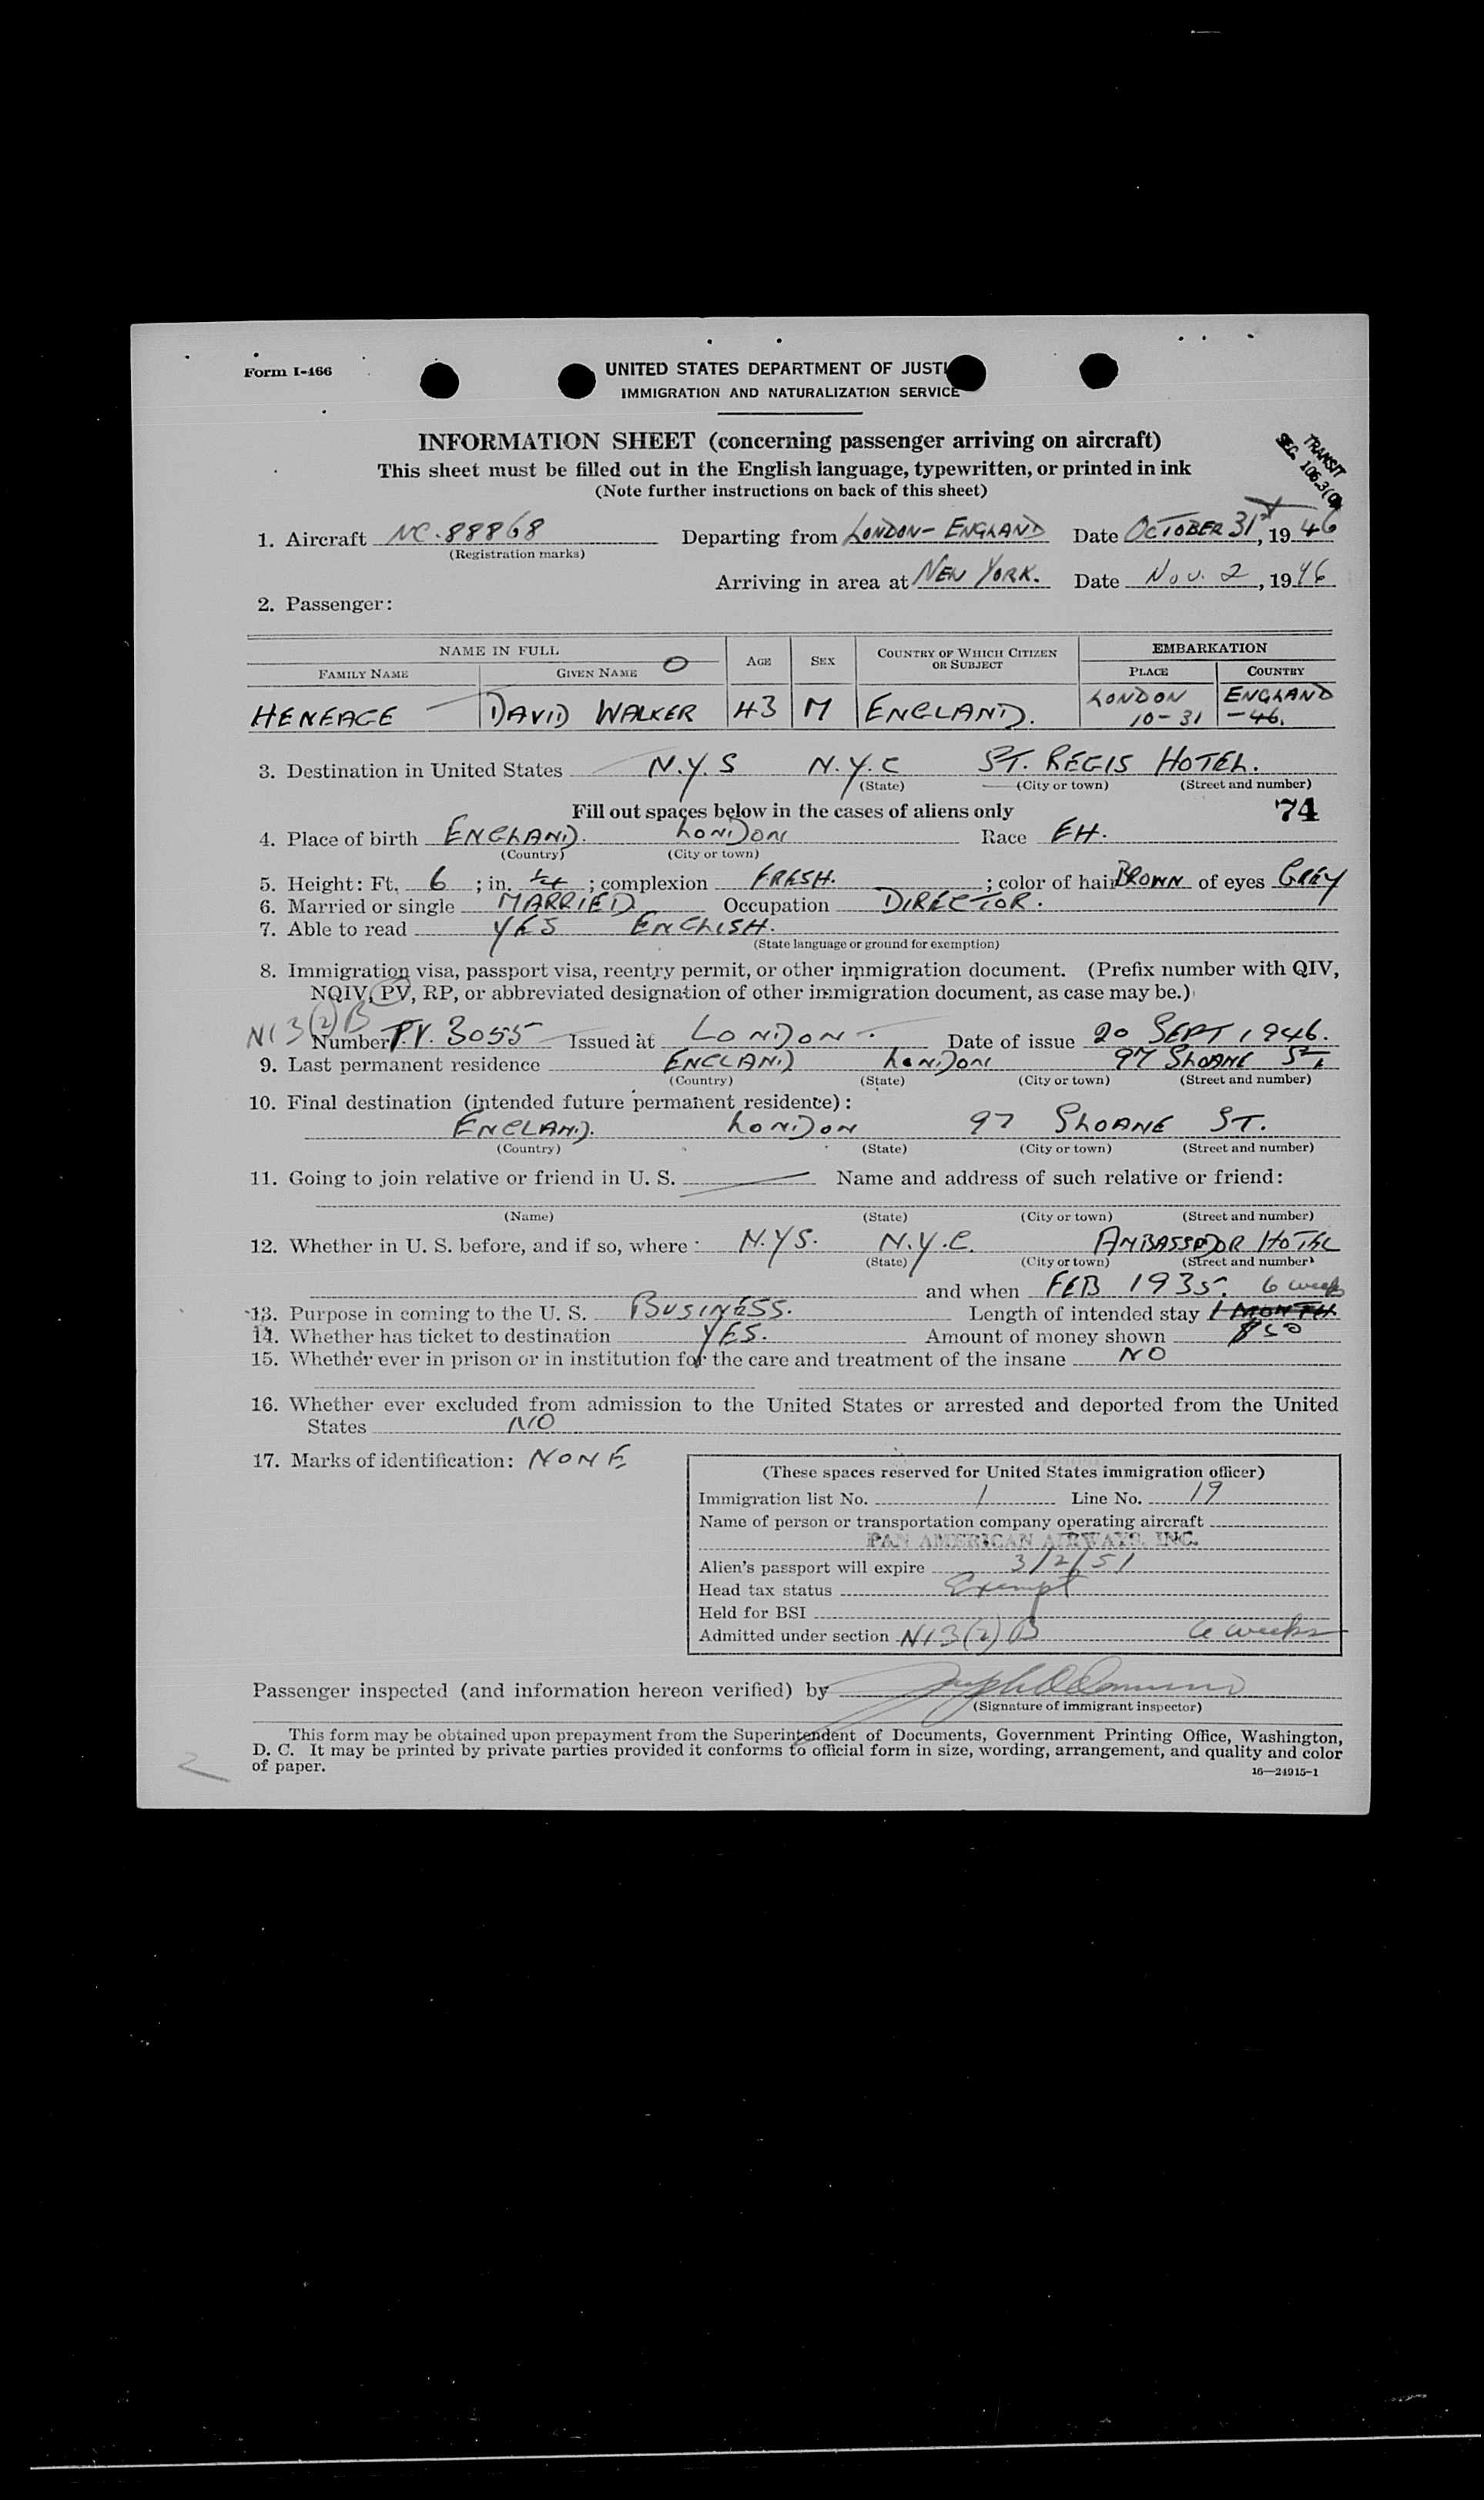 Form I-466
UNITED STATES DEPARTMENT OF JUSTI
IMMIGRATION AND NATURALIZATION SERVICE
INFORMATION SHEET (concerning passenger arriving on aircraft)
This sheet must be filled out in the English language, typewritten, or printed in ink
(Note further instructions on back of this sheet)
TRANSIT
SEC. 106.3(
1. Aircraft NC. 88868 Departing from LONDON - ENGLAND Date OCTOBER 31st, 19 46
(Registration marks)
Arriving in area at NEW YORK. Date Nov. 2, 19 46
2. Passenger:
NAME IN FULL AGE SEX COUNTRY OF WHICH CITIZEN OR SUBJECT EMBARKATION
FAMILY NAME GIVEN NAME O PLACE COUNTRY
HENEAGE DAVID WALKER 43 M ENGLAND. LONDON 10-31 ENGLAND -46.
3. Destination in United States N.Y.S N.Y.C ST. REGIS HOTEL.
(State) (City or town) (Street and number)
Fill out spaces below in the cases of aliens only 74
4. Place of birth ENGLAND. LONDON Race EH.
(Country) (City or town)
5. Height: Ft. 6; in. ; complexion FRESH.; color of hair BROWN of eyes GREY
6. Married or single MARRIED Occupation DIRECTOR.
7. Able to read YES ENGLISH.
(State language or ground for exemption)
8. Immigration visa, passport visa, reentry permit, or other immigration document. (Prefix number with QIV,
NQIV, PV, RP, or abbreviated designation of other immigration document, as case may be.)
N13(2)B
Number P.V. 3055 Issued at LONDON. Date of issue 20 SEPT 1946.
9. Last permanent residence ENGLAND LONDON 97 SLOANE ST.
(Country) (State) (City or town) (Street and number)
10. Final destination (intended future permanent residence):
ENGLAND. LONDON 97 SLOANE ST.
(Country) (State) (City or town) (Street and number)
11. Going to join relative or friend in U. S. Name and address of such relative or friend:
(Name) (State) (City or town) (Street and number)
12. Whether in U. S. before, and if so, where: N.Y.S. N.Y.C. AMBASSADOR HOTEL
(State) (City or town) (Street and number)
and when FEB 1935. 6 weeks
13. Purpose in coming to the U. S. BUSINESS. Length of intended stay 1 MONTH
14. Whether has ticket to destination YES. Amount of money shown $50
15. Whether ever in prison or in institution for the care and treatment of the insane NO
16. Whether ever excluded from admission to the United States or arrested and deported from the United
States NO
17. Marks of identification: NONE
(These spaces reserved for United States immigration officer)
Immigration list No. 1 Line No. 19
Name of person or transportation company operating aircraft
PAN AMERICAN AIRWAYS, INC.
Alien's passport will expire 3/2/51
Head tax status Exempt
Held for BSI
Admitted under section N13(2)B 6 weeks
Passenger inspected (and information hereon verified) by
(Signature of immigrant inspector)
This form may be obtained upon prepayment from the Superintendent of Documents, Government Printing Office, Washington,
D. C. It may be printed by private parties provided it conforms to official form in size, wording, arrangement, and quality and color
of paper.
16—24915-1
2